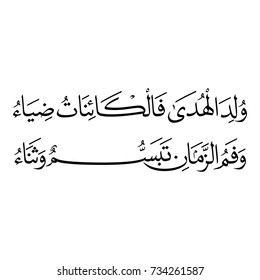 وُلِدَ الْهُدَىٰ فَالْكَائِنَاتُ ضِيَاءُ
وَفَمُ الزَّمَانِ تَبَسُّمٌ وَثَنَاءُ
shutterstock.com • 734261587